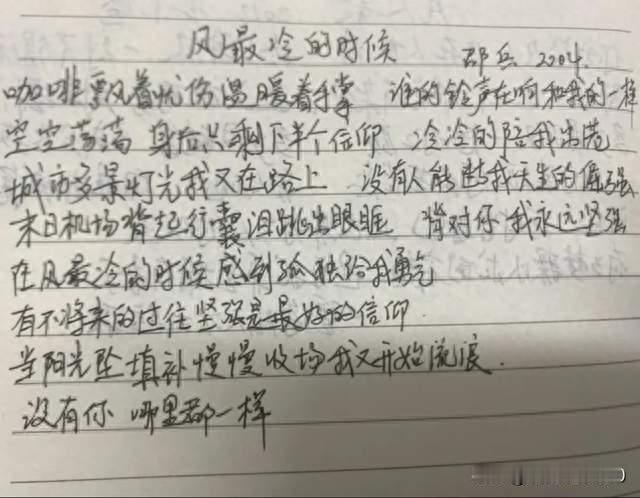 风最冷的时候 邵兵 2204.
咖啡飘着忧伤温暖着手掌 谁的铃声在响和我的一样
空空荡荡 身后只剩下半个信仰 冷冷的陪我出港
城市夜景灯光我又在路上 没有人能 我天生的倔强
末日机场背起行囊泪跳出眼眶 背对你我永远坚强
在风最冷的时候感到孤独给我勇气
有不将来的过往坚强是最好的信仰.
当阳光坠填补慢慢收场我又开始流浪.
没有你 哪里都一样